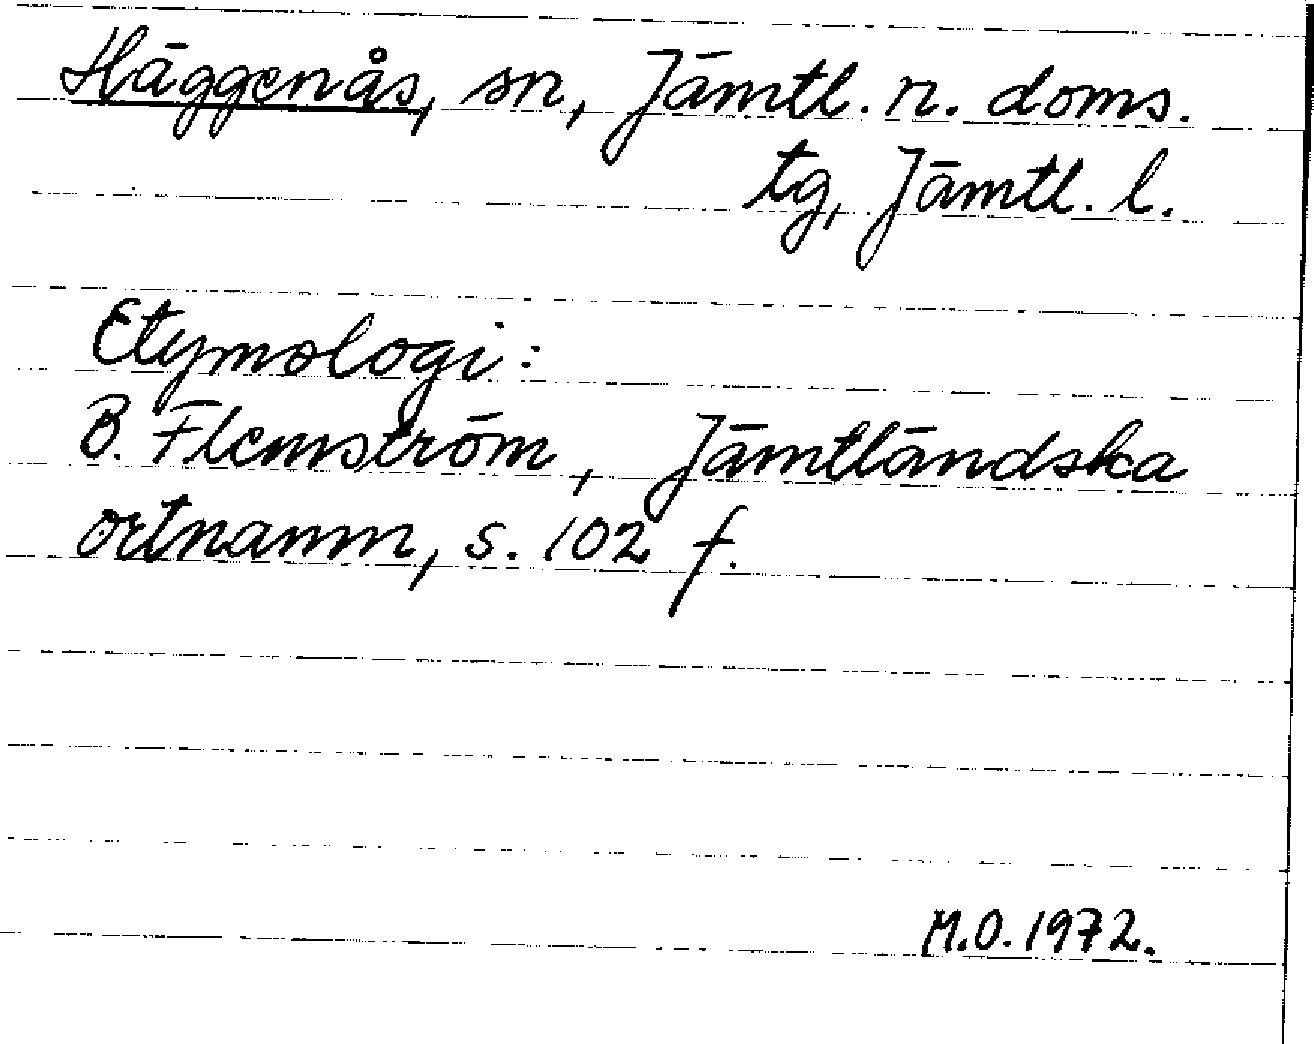 Häggenås, sn, Jämtl. n. doms.
tg, Jämtl. l.
Etymologi:
B. Flemström, Jämtländska
ortnamn, s. 102 f.
M.O. 1972.